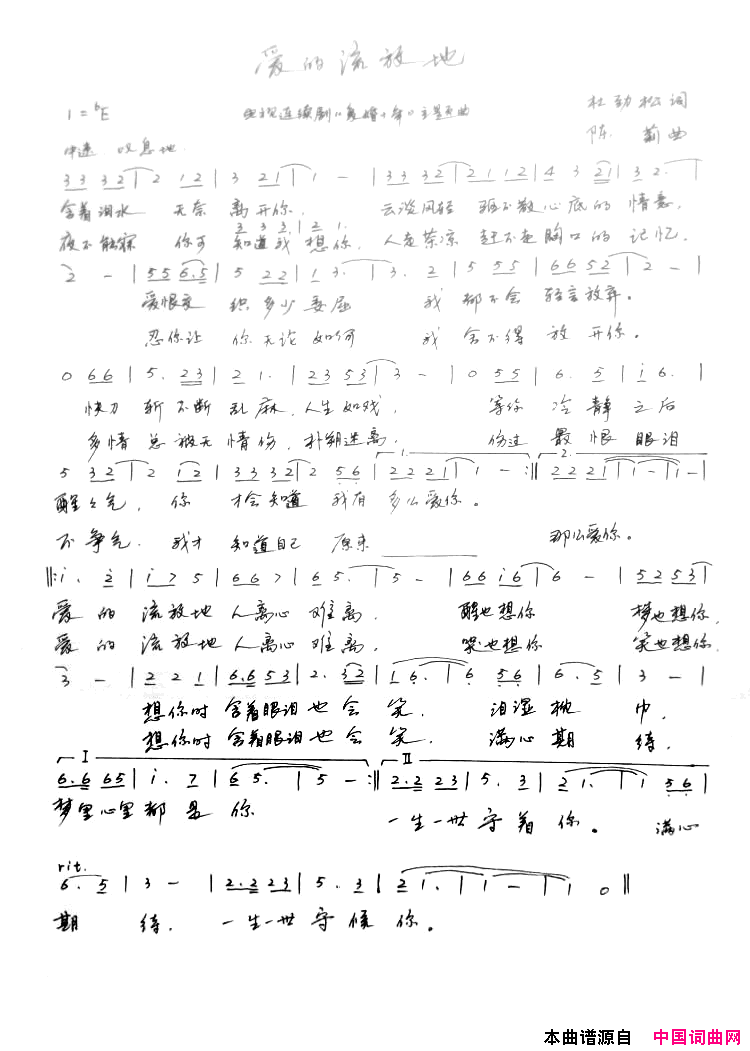 爱的流放地
1=♭E 电视连续剧《离婚十年》主题曲 杜劲松词
中速 叹息地 陈 曲
3 3 3 2 | 2 1 2 | 3 2 1 | 1 - | 3 3 3 2 | 2 1 1 2 | 4 3 2 1 | 3 2. |
含着泪水 无奈 离开你, 云淡风轻 驱不散心底的情意,
3 3 3. | 2 1.
夜不能寐 你可知道我想你, 人走茶凉 赶不走胸口的记忆,
2 - | 5 5 6. 5 | 5 2 2 | 1 3. | 3. 2 | 5 5 5 | 6 6 5 2 | 2 - |
爱恨交织多少委屈 我都不会轻言放弃。
忍你让你无论如何 我舍不得放开你。
0 6 6 | 5. 2 3 | 2 1. | 2 3 5 3 | 3 - | 0 5 5 | 6. 5 | i 6. |
快刀斩不断乱麻,人生如戏, 等你冷静之后
多情总被无情伤,扑朔迷离, 伤过最恨眼泪
1. 2.
5 3 2 | 2 1 2 | 3 3 3 2 | 2 5 6 | 2 2 2 1 | 1 - :|| 2 2 2 1 | 1 - | 1 - |
醒醒气, 你才会知道我有多么爱你。
不争气, 我才知道自己原来 那么爱你。
||: i. 2 | i 7 5 | 6 6 7 | 6 5. | 5 - | 6 6 i 6 | 6 - | 5 2 5 3 |
爱的流放地人离心难离, 醒也想你 梦也想你,
爱的流放地人离心难离, 哭也想你 笑也想你,
3 - | 2 2 1 | 6. 6 5 3 | 2. 3 2 | 1 6. | 6 5 6 | 6. 5 | 3 - |
想你时含着眼泪也会笑, 泪湿枕巾,
想你时含着眼泪也会笑, 满心期待,
I II
6. 6 6 5 | i. 7 | 6 5. | 5 - :|| 2. 2 2 3 | 5. 3 | 2 1. | 1 5 6 |
梦里心里都是你 一生一世守着你。 满心
rit.
6. 5 | 3 - | 2. 2 2 3 | 5. 3 | 2 1. | 1 - | 1 0 ||
期待, 一生一世守候你。
本曲谱源自 中国词曲网